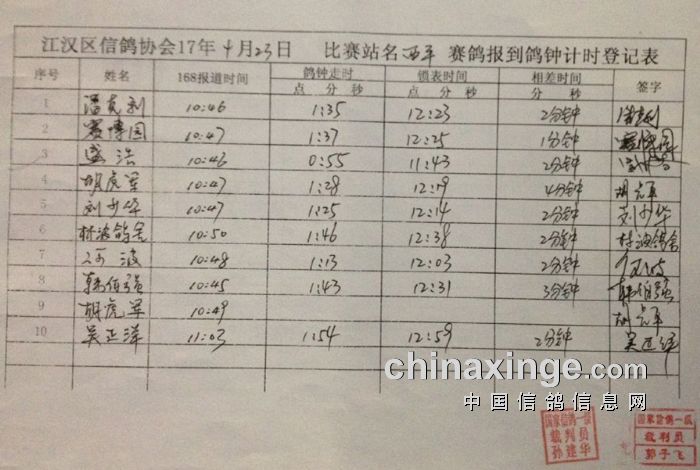 江汉区信鸽协会17年4月23日 比赛站名西平 赛鸽报到鸽钟计时登记表
序号 姓名 168报道时间 鸽钟走时 锁表时间 相差时间 签字
点 分 秒 点 分 秒 分 秒
1 潘克利 10:46 1:35 12:23 2分钟
2 赛博园 10:47 1:37 12:25 1分钟 赛博园
3 盛浩 10:43 0:55 11:43 2分钟
4 胡虎军 10:47 1:28 12:19 4分钟
5 刘少华 10:47 1:25 12:14 2分钟 刘少华
6 林波鸽舍 10:50 1:46 12:38 2分钟 林波鸽舍
7 何波 10:48 1:13 12:03 2分钟 何波
8 韩伯强 10:45 1:43 12:31 3分钟 韩伯强
9 胡虎军 10:49
10 吴正洋 11:03 1:54 12:59 2分钟 吴正洋
chinaxinge.com
中国信鸽信息网
国家信鸽一级
裁判员
孙建华
国家信鸽一级
裁判员
郭子飞